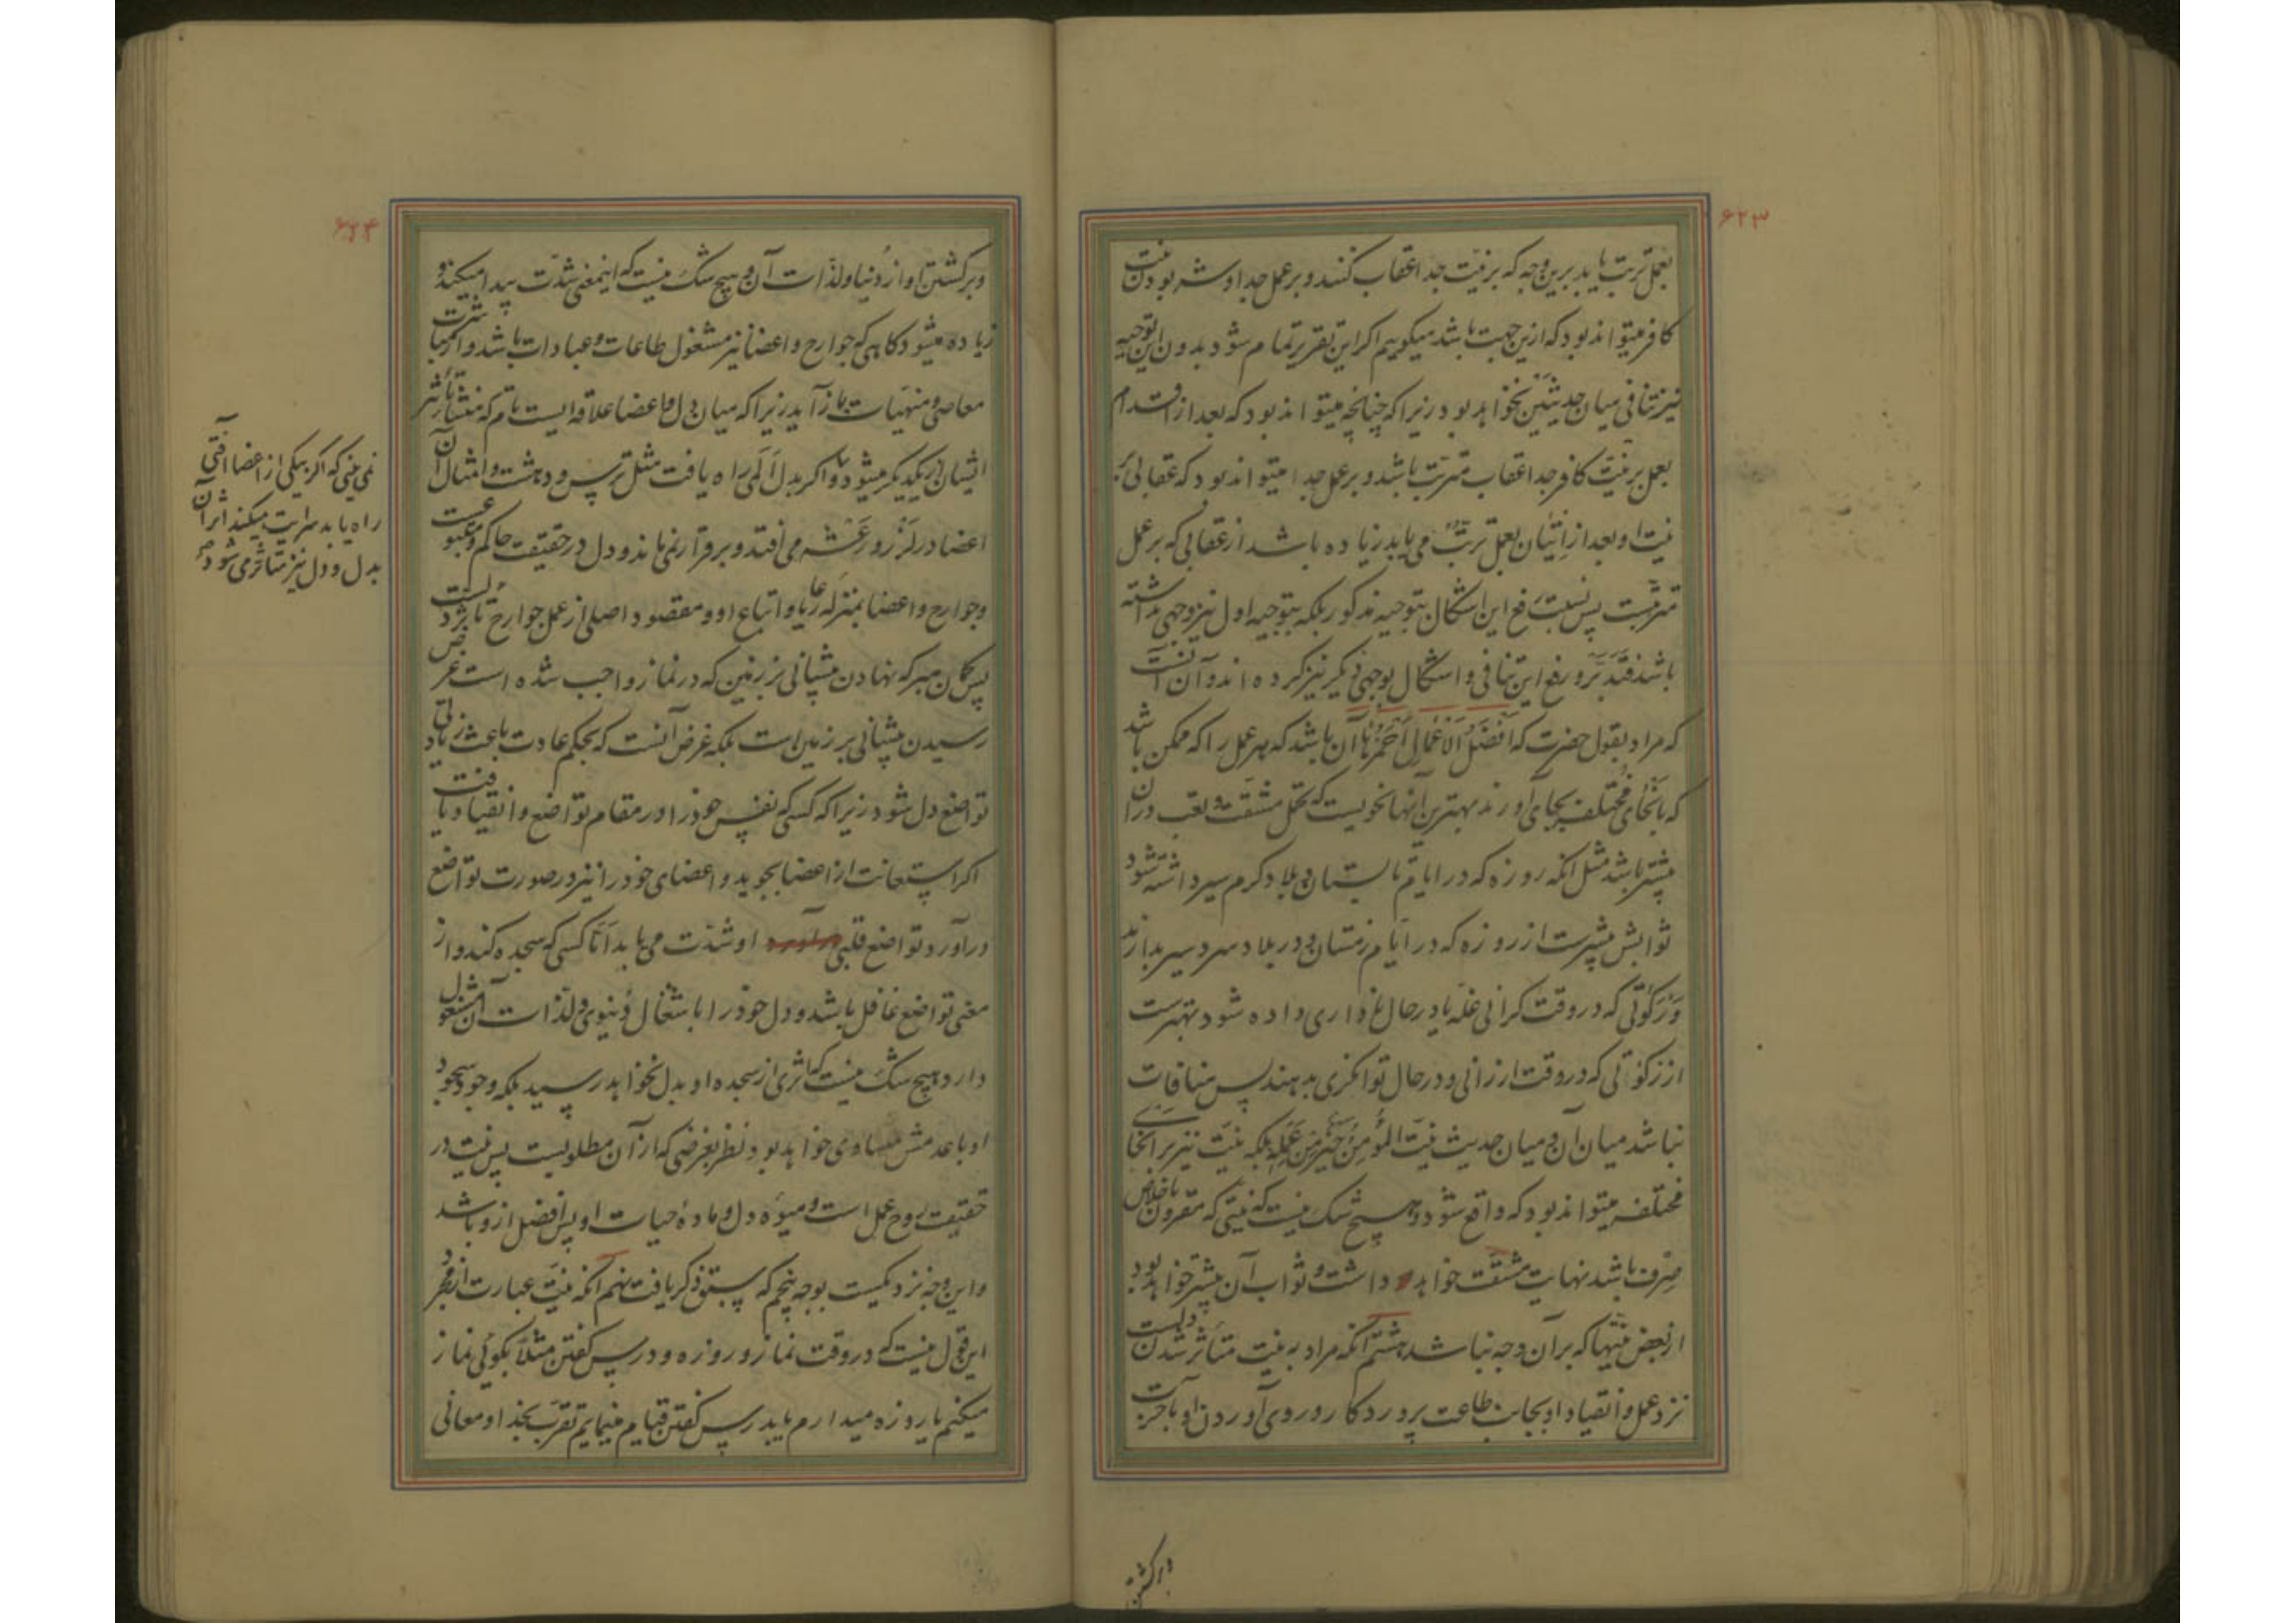 ۶۲۳
بعمل ترتب یابد برین وجه که بر نیت جدا عقاب کنند و بر عمل جدا و شر بودن نیت
کافر میتواند بود که ازین جهت باشد میکوییم اکر این تقریر تمام شود بدون این توجیه
نیز تنافی میان حدیثین نخواهد بود زیرا که چنانچه میتواند بود که بعد از اقدام
بعمل بر نیت کافر جدا عقاب مترتب باشد و بر عمل جدا میتواند بود که عقابی که بر
نیت او بعد از اتیان بعمل ترتب می یابد زیاده باشد از عقابی که بر عمل
مترتبست پس نسبت رفع این اشکال بتوجیه مذکور بلکه بتوجیه اول نیز وجهی نداشته
باشد فتدبر و رفع این تنافی و اشکال بوجهی دیگر نیز کرده اند و آن آنست
که مراد بقول حضرت که افضل الاعمال احمزها آن باشد که هر عمل را که ممکن باشد
که بانحای مختلفه بجای آورند بهترین آنها نحویست که تحمل مشقت و تعب در آن
بیشتر باشد مثل انکه روزه که در ایام تابستان و بلاد کرم سیر داشته شود
ثوابش بیشترست از روزه که در ایام زمستان و در بلاد سرد سیر بدارند
و زکوتی که در وقت کرانی غله یا در حال ناداری داده شود بهترست
از زکوتی که در وقت ارزانی و در حال توانکری بدهند پس منافات
نباشد میان آن و میان حدیث نیت المؤمن خیر من عمله بلکه نیت نیز بر انحای
مختلفه میتواند بود که واقع شود و هیچ شک نیست که نیتی که مقرون باخلاص
صرف باشد نهایت مشقت خواهد داشت و ثواب آن بیشتر خواهد بود
از بعض نیتها که بر آن وجه نباشد هشتم انکه مراد به نیت متأثر شدن دلست
نزد عمل و انقیاد او بجانب طاعت پروردکار و روی آوردن او بآخرت
و برکشتن
۶۲۴
و برکشتن او از دنیا و لذات آن و هیچ شک نیست که اینمعنی شدت پیدا میکند و
زیاده میشود کاهی که جوارح و اعضا نیز مشغول طاعات و عبادات باشد و از مباشرت
معاصی و منهیات باز آید زیرا که میان دل و اعضا علاقه ایست تام که منشأ تأثر
ایشان از یکدیکر میشود و اکر بدل المی راه یافت مثل ترس و دهشت و امثال آن
اعضا در لرز و رعشه می افتد و برقرار نمی ماند و دل در حقیقت حاکم و متبوعست
و جوارح و اعضا بمنزله رعایا و اتباع او و مقصود اصلی از عمل جوارح تأثر دلست
پس کمان مبر که نهادن پیشانی بر زمین که در نماز واجب شده است غرض
رسیدن پیشانی بر زمین است بلکه غرض آنست که بحکم عادت باعث زیادتی
تواضع دل شود زیرا که کسی که نفس خود را در مقام تواضع و انقیاد یافت
اکر استعانت از اعضا بجوید و اعضای خود را نیز در صورت تواضع
درآورد تواضع قلبی او شدت می یابد اما کسی که سجده کند و از
معنی تواضع غافل باشد و دل خود را باشغال دنیوی و لذات آن مشغول
دارد هیچ شک نیست که اثری از سجده او بدل نخواهد رسید بلکه وجود سجود
او با عدمش مساوی خواهد بود نظر بغرضی که از آن مطلوبست پس نیت در
حقیقت روح عمل است و میوه دل و ماده حیات او پس افضل ازو باشد
و این وجه نزدیکست بوجه پنجم که سبق ذکر یافت نهم انکه نیت عبارت از مجرد
این قول نیست که در وقت نماز و روزه و درس کفتن مثلا بکوئی نماز
میکنم یا روزه میدارم یا بدرس کفتن قیام مینمایم تقرب بخدا و معانی
نمی بینی که اکر بیکی از اعضا آفتی
راه یابد سرایت میکند اثر آن
بدل و دل نیز متأثر می شود صح